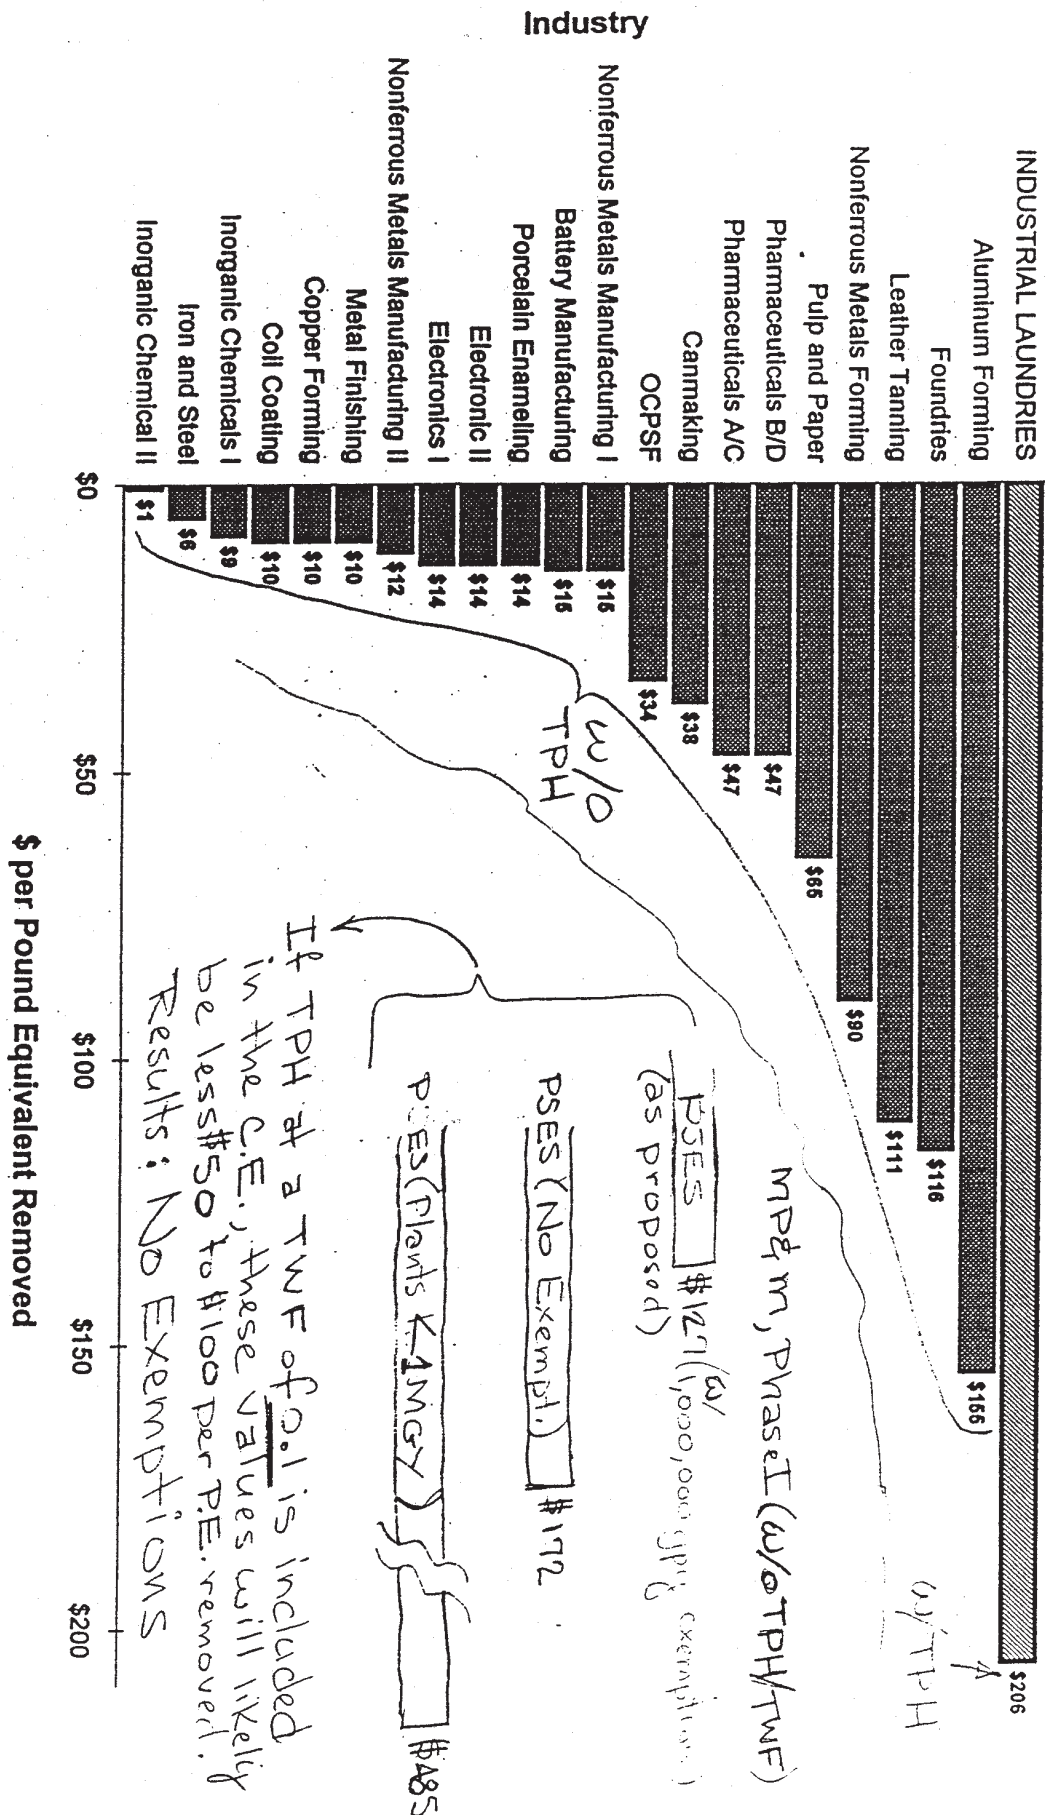 Industry
INDUSTRIAL LAUNDRIES $206
Aluminum Forming $155
Foundries $116
Leather Tanning $111
Nonferrous Metals Forming $90
Pulp and Paper $65
Pharmaceuticals B/D $47
Pharmaceuticals A/C $47
Canmaking $38
OCPSF $34
Nonferrous Metals Manufacturing I $15
Battery Manufacturing $15
Porcelain Enameling $14
Electronic II $14
Electronics I $14
Nonferrous Metals Manufacturing II $12
Metal Finishing $10
Copper Forming $10
Coil Coating $10
Inorganic Chemicals I $9
Iron and Steel $6
Inorganic Chemical II $1
$0 $50 $100 $150 $200
$ per Pound Equivalent Removed
w/TPH
w/o
TPH
MP&M, Phase I (w/o TPH/TWF)
PSES $127 (w/
(as proposed) 1,000,000 gpy exemption)
PSES (No Exempt.) $172
PSES (Plants < 1MGY) $485
If TPH at a TWF of 0.1 is included
in the C.E., these values will likely
be less $50 to $100 per P.E. removed.
Results: No Exemptions